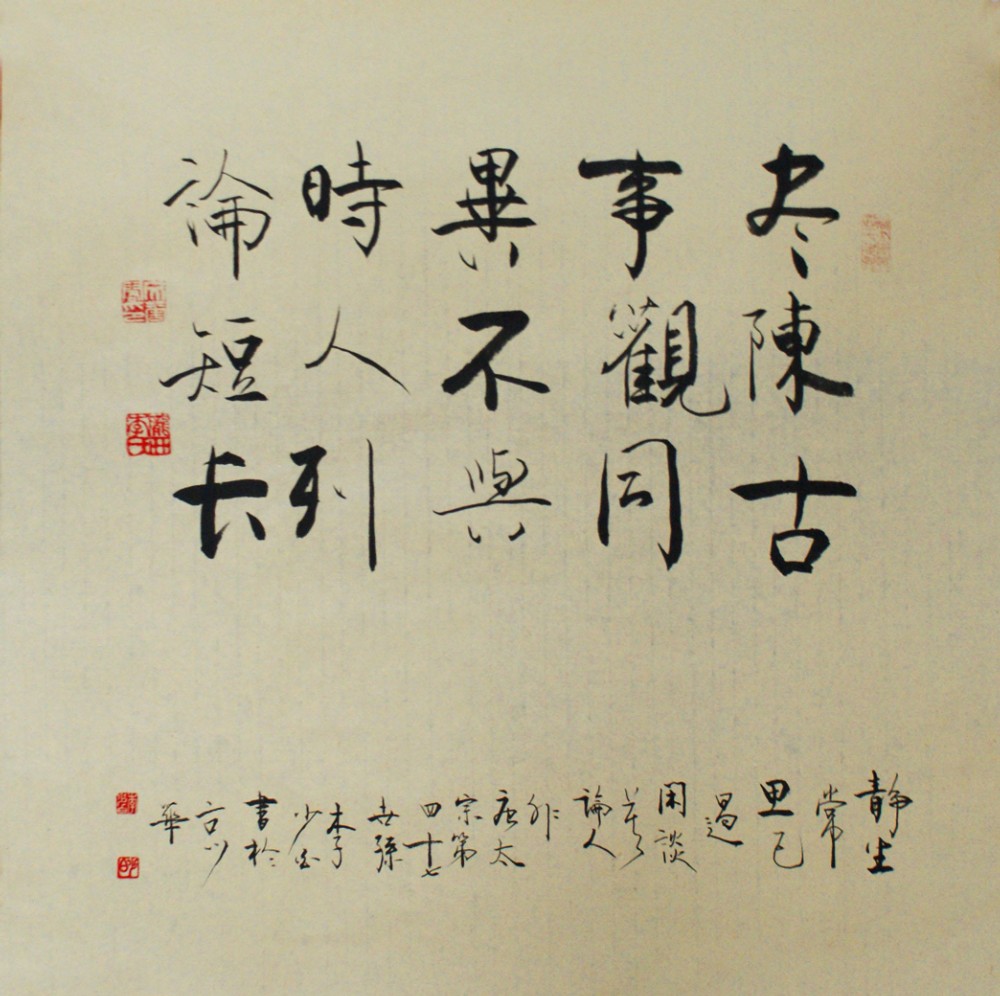 尽陳古
事觀同
異不與
時人列
論短長
靜坐
常
思己
過
閑談
莫
論人
非
唐太
宗第
四十七
世孫
木子
少白
書於
京川
華